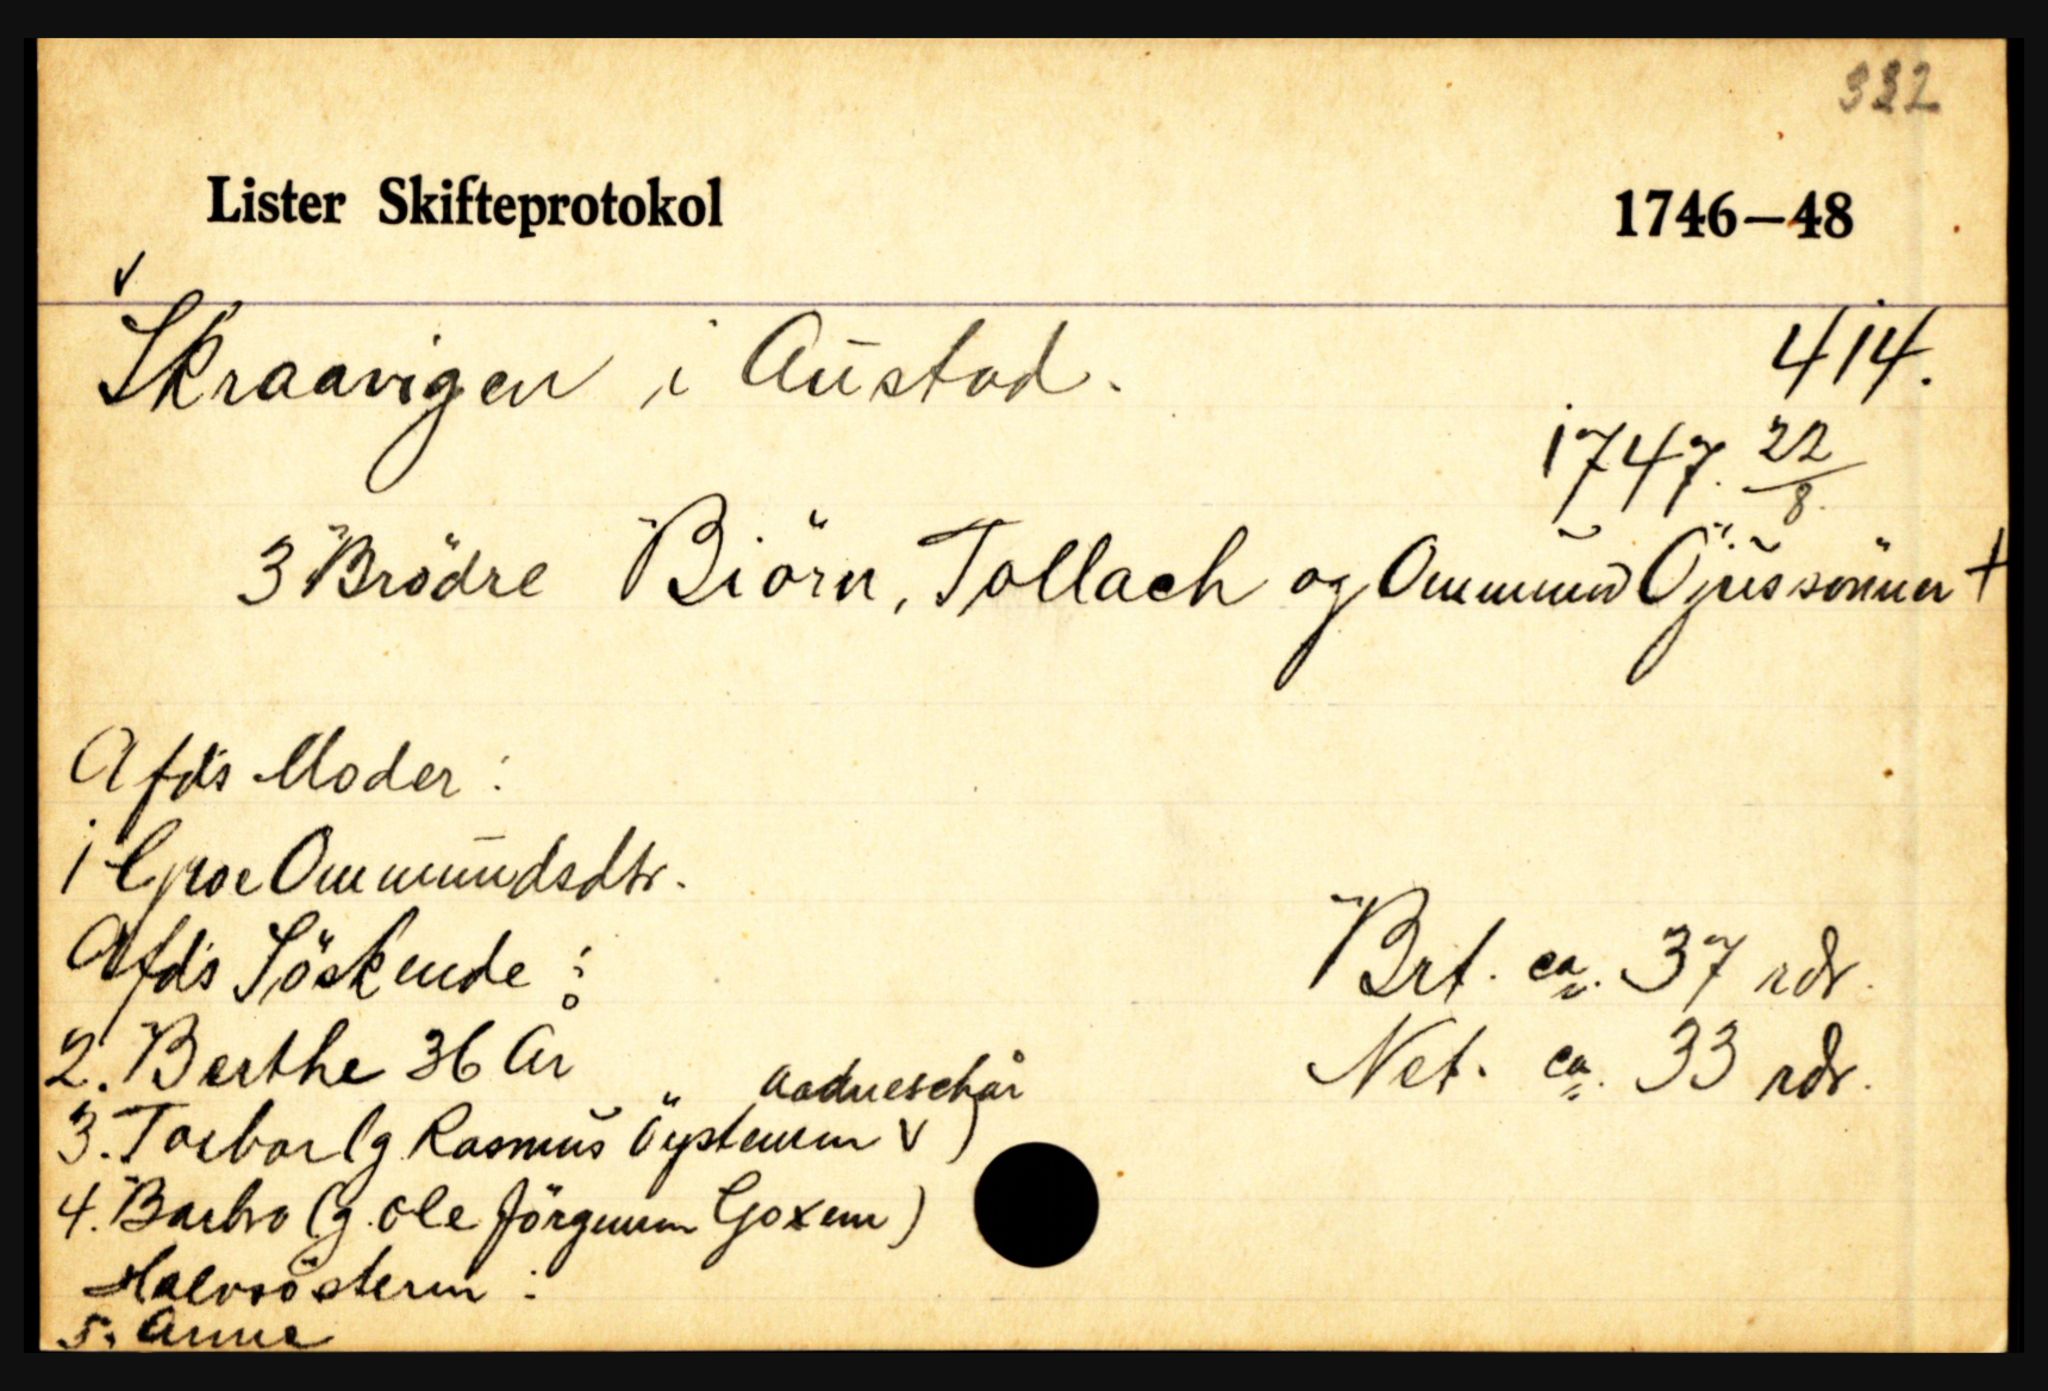 332
Lister Skifteprotokol 1746–48
Skraavigen i Austad. 414.
1747. 22/8.
3 Brödre Biörn, Tollach og Ommund Öjussönner +
Afd's Moder:
1 Groe Ommundsdtr.
Afd's Söskende:
2. Berthe 36 Ar
Brt. ca. 37 rdr.
Net. ca. 33 rdr.
3. Torbor (g. Rasmus Öystensen v Aadneschår)
4. Barbro (g. Ole Jörgensen Goxem)
Halvsösteren:
5. Anne